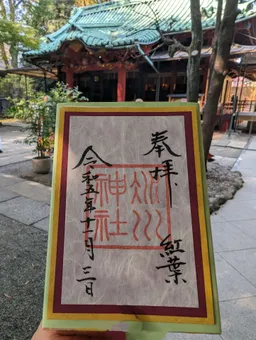 奉拝
紅葉
氷川
神社
令和五年十一月三日